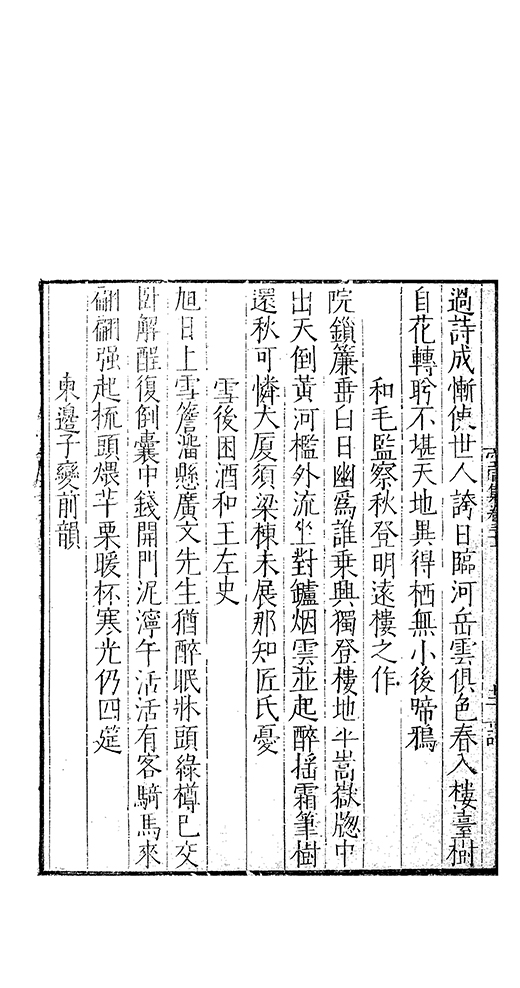 過詩成慚使世人誇日臨河岳雲俱色春入樓臺樹
自花轉盻不堪天地異得栖無小後啼鴉
和毛監察秋登明遠樓之作
院鎖簾垂白日幽爲誰乗興獨登樓地斗嵩嶽牎中
出天倒黃河檻外流坐對鑪烟雲並起醉揺霜筆樹
還秋可憐大厦須梁棟未展那知匠氏憂
雪後困酒和王左史
旭日上雪簷溜懸廣文先生猶醉眠牀頭綠樽已交
卧解酲復倒囊中錢開門泥濘午活活有客騎馬來
翩翩强起梳頭煨芋栗暖杯寒光仍四筵
柬邊子變前韻